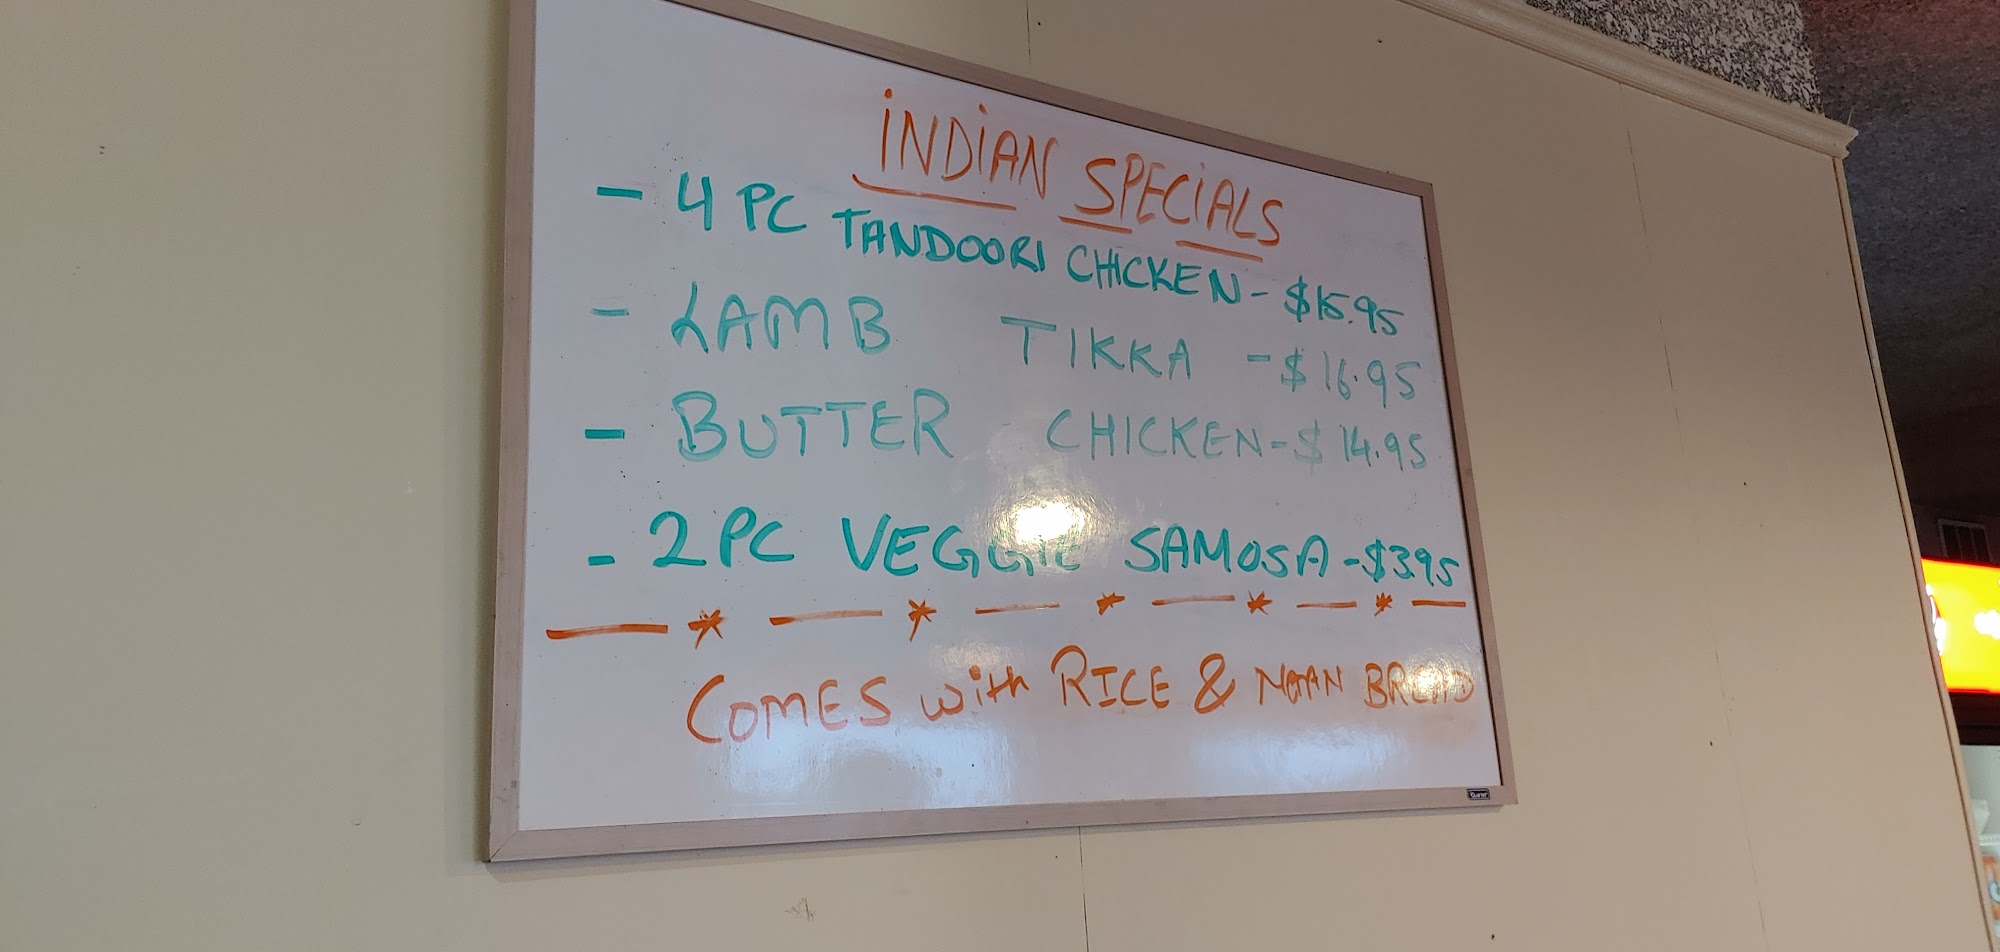 INDIAN SPECIALS
- 4 PC TANDOORI CHICKEN - $15.95
- LAMB TIKKA - $16.95
- BUTTER CHICKEN - $14.95
- 2 PC VEGGIE SAMOSA - $3.95
COMES with RICE & NAAN BREAD
Quartet